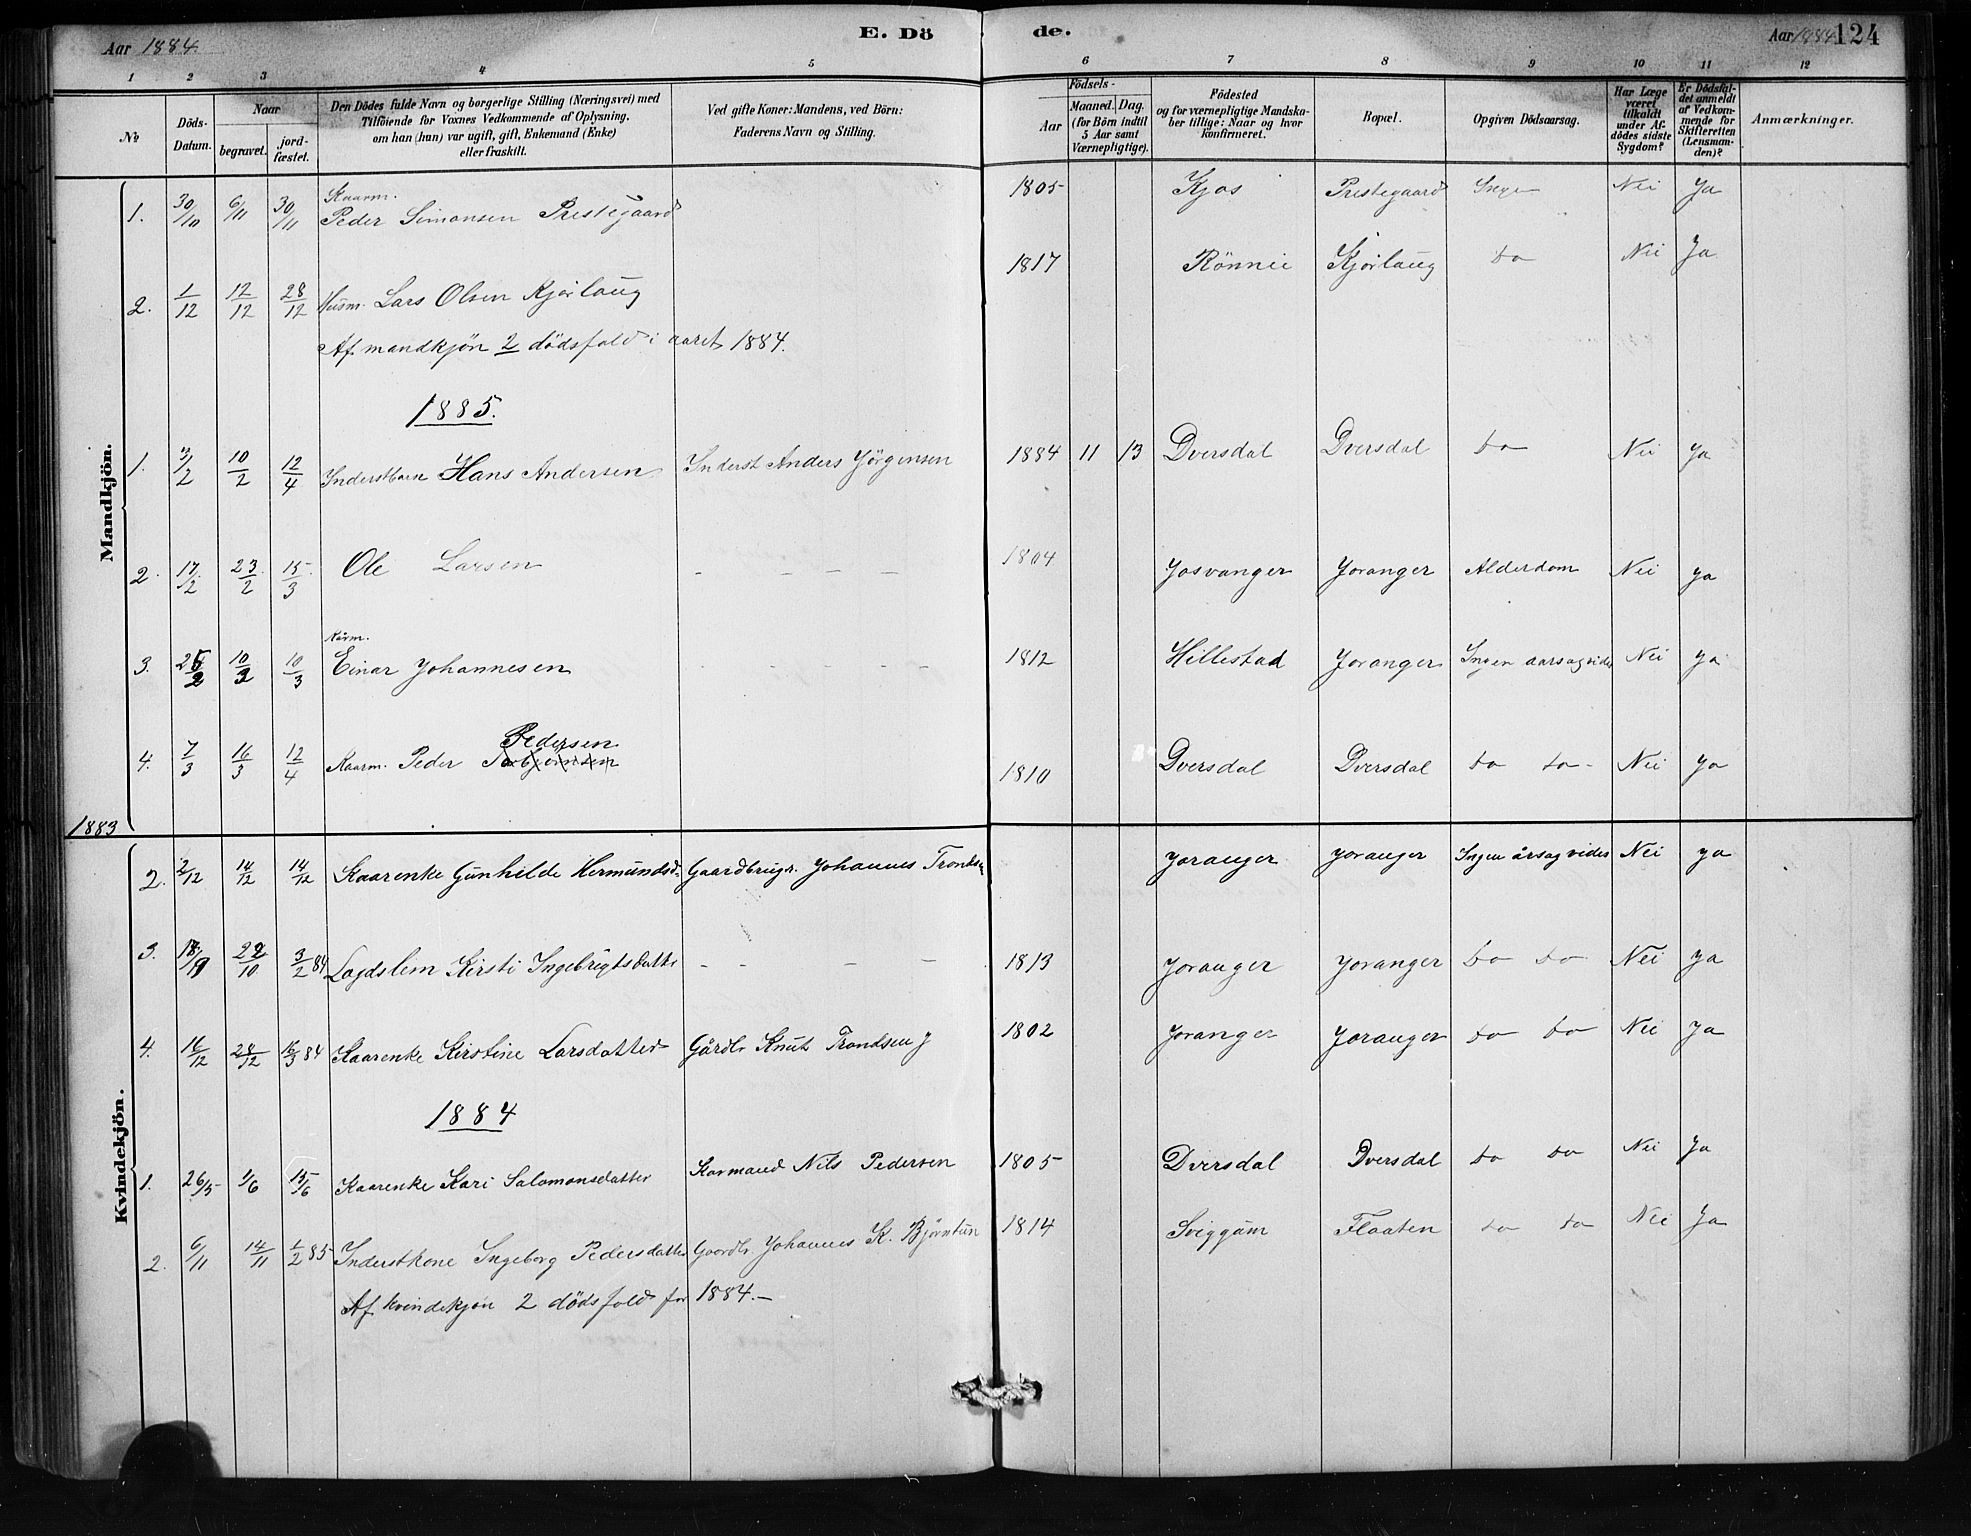 Aar 1884. E. Dö de. Aar 1884 124
1 2 3 4 5 6 7 8 9 10 11 12
№ Döds-Datum. Naar begravet. jord-fæstet. Den Dödes fulde Navn og borgerlige Stilling (Næringsvei) med Tilföiende for Voxnes Vedkommende af Oplysning, om han (hun) var ugift, gift, Enkemand (Enke) eller fraskilt. Ved gifte Koner: Mandens, ved Börn: Faderens Navn og Stilling. Födsels- Aar Maaned. Dag. (for Börn indtil 5 Aar samt Værnepligtige). Födested og for værnepligtige Mandska-ber tillige: Naar og hvor konfirmeret. Bopæl. Opgiven Dödsaarsag. Har Læge været tilkaldt under Af-dödes sidste Sygdom? Er Dödsfal-det anmeldt af Vedkom-mende for Skifteretten (Lensman-den)? Anmærkninger.
Mandkjön.
1. 30/10 6/11 30/11 Kaarm. Peder Simonsen Prestegaard 1805 Kjos Prestegaard Ingen Nei Ja
2. 1/12 12/12 28/12 Husm. Lars Olsen Kjørlaug 1817 Rönnei Kjørlaug do Nei Ja
Af mandkjön 2 dödsfald i aaret 1884.
1885.
1. 3/2 10/2 12/4 Inderstbarn Hans Andersen Inderst Anders Jörgensen 1884 11 13 Dversdal Dversdal do Nei Ja
2. 17/2 23/2 15/3 Ole Larsen – – – – 1804 Josvanger Joranger Alderdom Nei Ja
3. 25/2 10/3 10/3 Kårm. Einar Johannesen – – – – 1812 Hillestad Joranger Ingen aarsag vides Nei Ja
4. 7/3 16/3 12/4 Kaarm. Peder Torbjørnsen Pedersen 1810 Dversdal Dversdal do do Nei Ja
1883
Kvindekjön.
2. 2/12 14/12 14/12 Kaarenke Gunhilde Hermundsd. Gaardbrugr. Johannes Tronds. Joranger Joranger Ingen årsag vides Nei Ja
3. 18/9 22/10 3/2 84 Lægdslem Kirsti Ingebrigtsdatte – – – – 1813 Joranger Joranger do do Nei Ja
4. 16/12 28/12 16/3 84 Kaarenke Kirstine Larsdatter Gårdbr Knut Trondsen J 1802 Joranger Joranger do do Nei Ja
1884
1. 26/5 1/6 15/6 Kaarenke Kari Salomonsdatter Karmand Nils Pedersen 1805 Dversdal Dversdal do do Nei Ja
2. 6/11 14/11 1/2 85 Inderstkone Ingeborg Pedersdatter Gaardbr. Johannes K. Bjørntun 1814 Sviggum Flaaten do do Nei Ja
Af kvindekjön 2 dödsfald for 1884.–